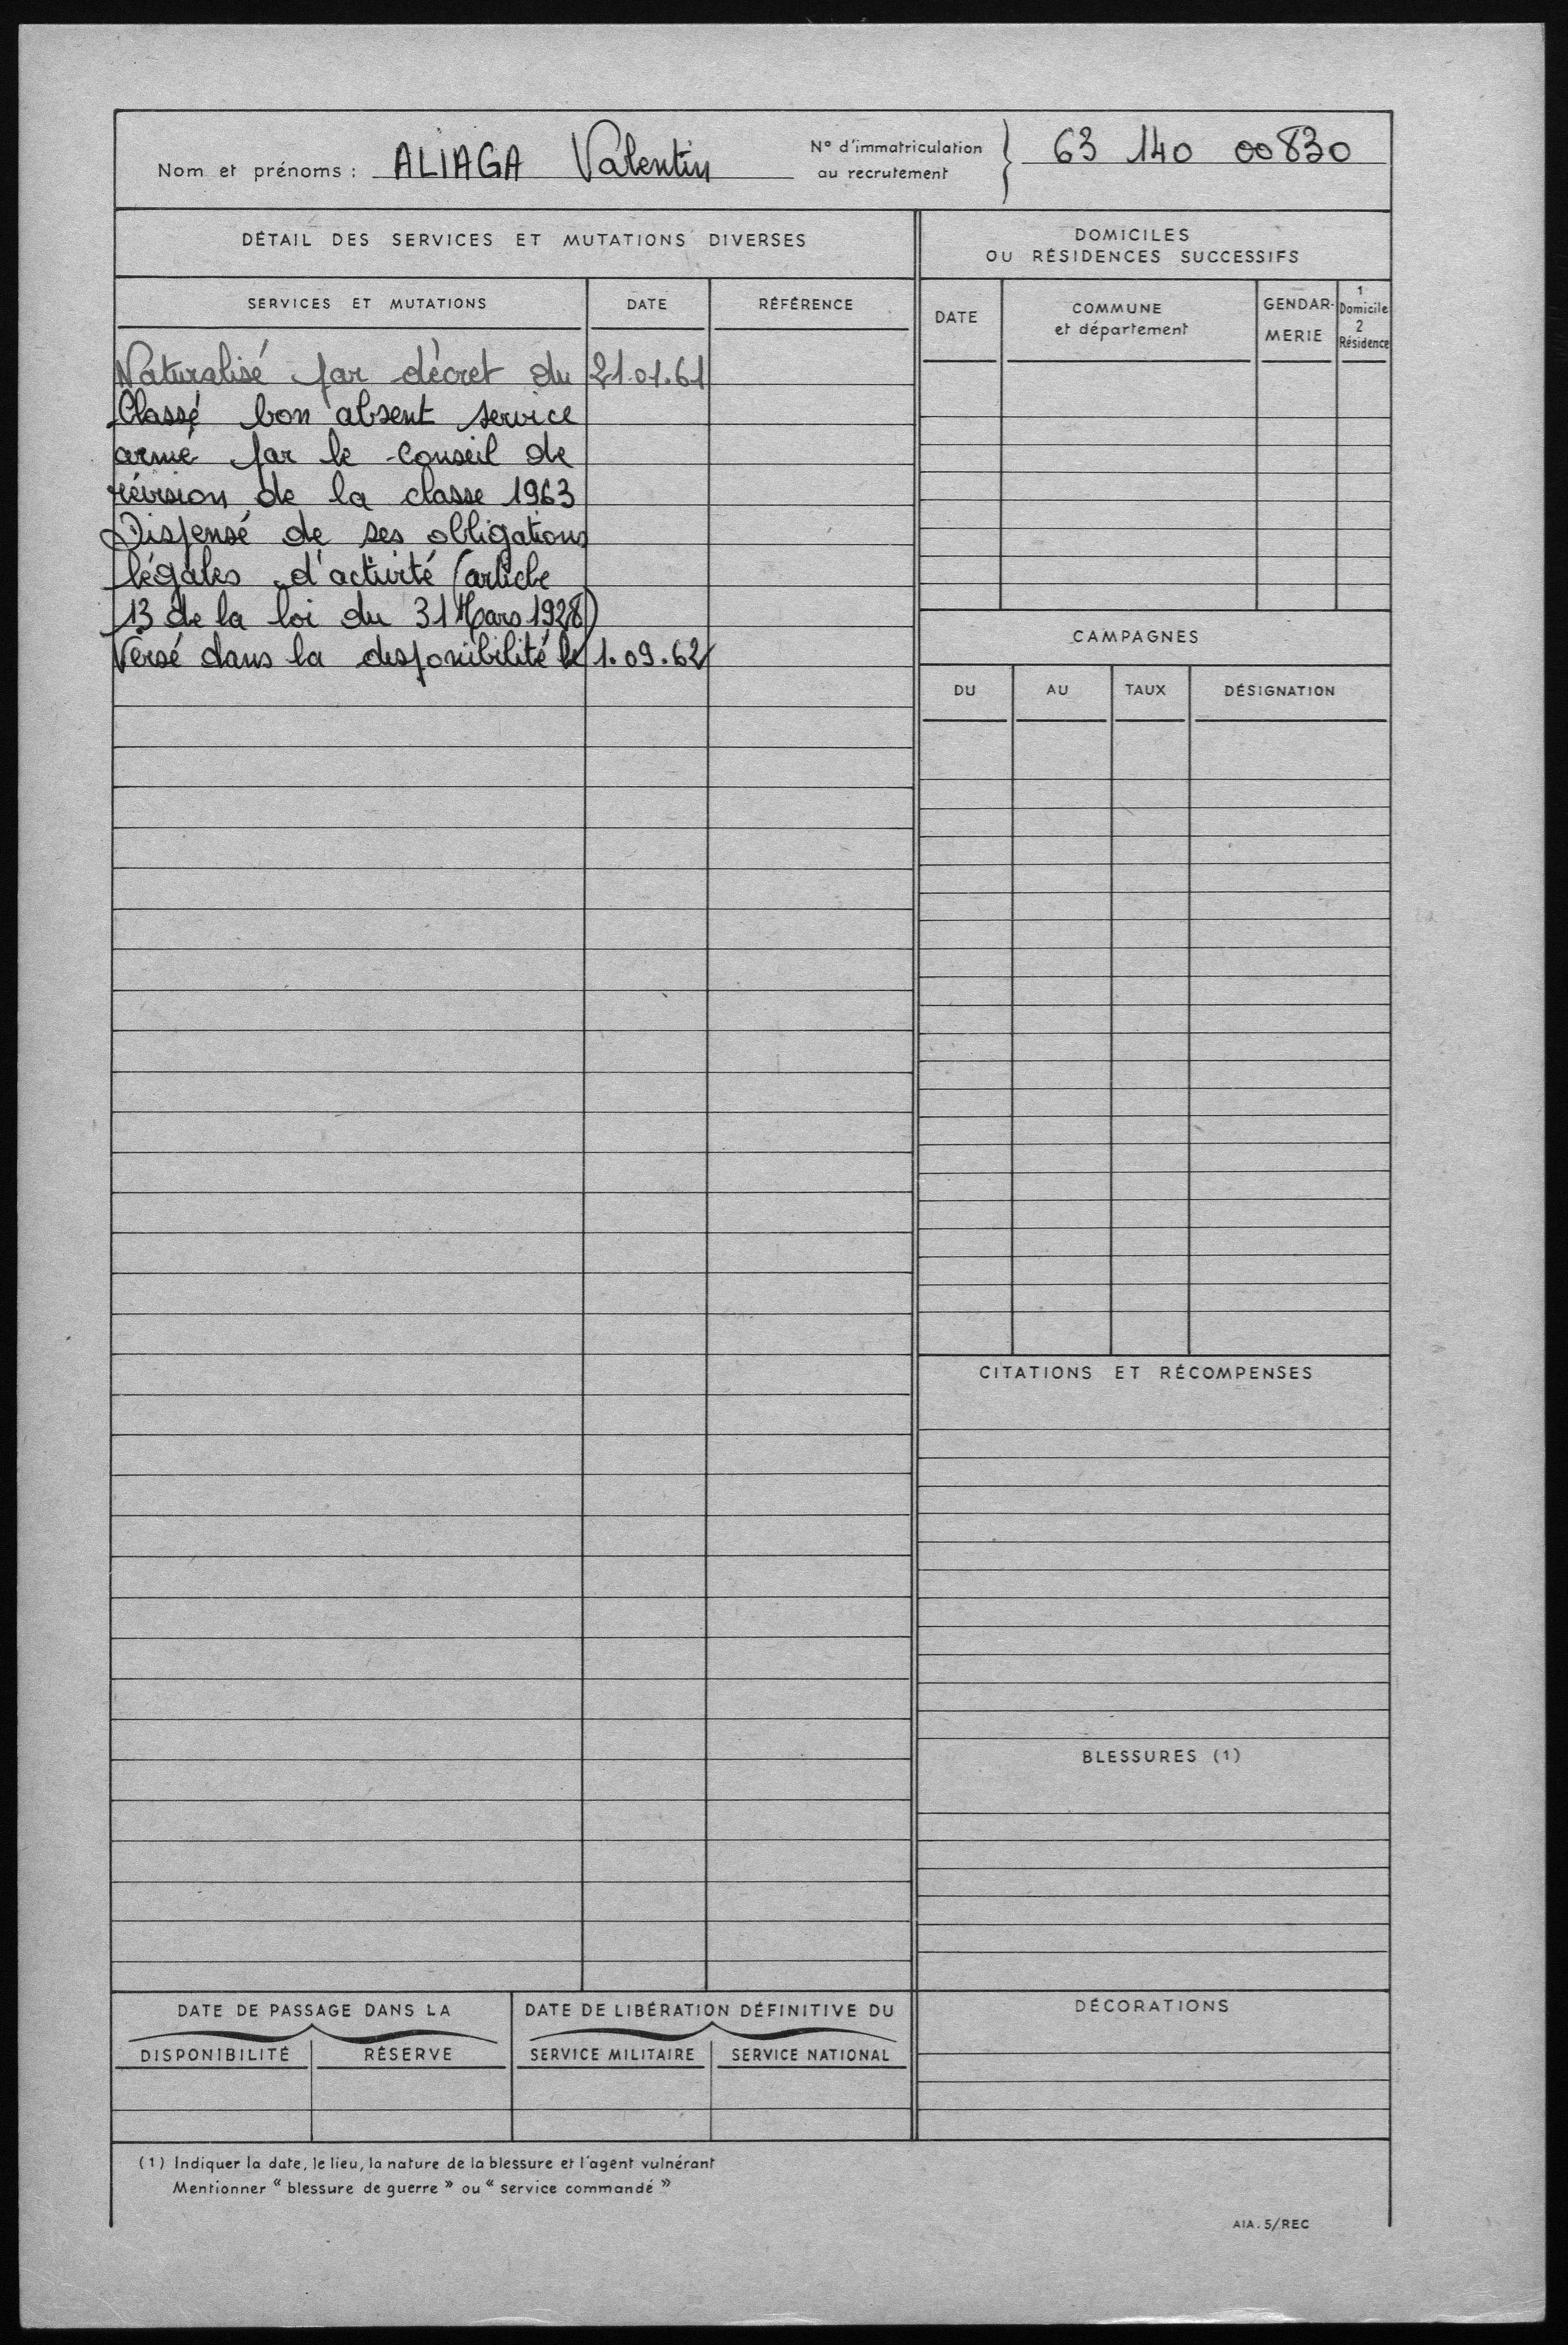 Nom et prénoms : ALIAGA Valentin
N° d'immatriculation
au recrutement
63 140 00830
DÉTAIL DES SERVICES ET MUTATIONS DIVERSES
SERVICES ET MUTATIONS DATE RÉFÉRENCE
Naturalisé par décret du 21.01.61
Classé bon absent service
armé par le conseil de
révision de la classe 1963
Dispensé de ses obligations
légales d'activité (article
13 de la loi du 31 Mars 1928)
Versé dans la disponibilité le 1.09.62
DOMICILES
OU RÉSIDENCES SUCCESSIFS
DATE
COMMUNE
et département
GENDAR-
MERIE
1
Domicile
2
Résidence
CAMPAGNES
DU AU TAUX DÉSIGNATION
CITATIONS ET RÉCOMPENSES
BLESSURES (1)
DATE DE PASSAGE DANS LA
DISPONIBILITÉ RÉSERVE
DATE DE LIBÉRATION DÉFINITIVE DU
SERVICE MILITAIRE SERVICE NATIONAL
DÉCORATIONS
(1) Indiquer la date, le lieu, la nature de la blessure et l'agent vulnérant
Mentionner “ blessure de guerre ” ou “ service commandé ”
AIA. 5/REC